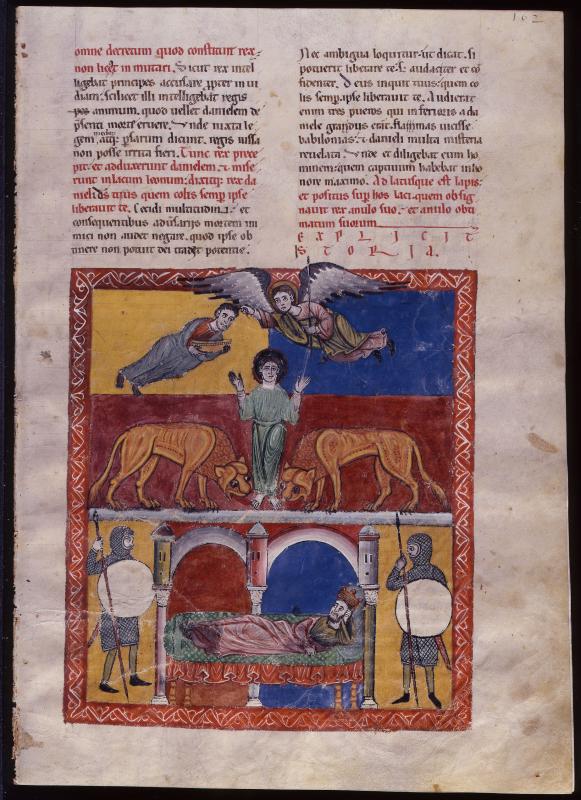 162
omne decretum quod constituit rex
non licet inmutari. Sicut rex intel
ligebat principes accusare propter in ui
diam: scilicet illi intelligebat regis
animum. quod uellet danielem de
psenti morte eruere. Unde iuxta le
gem medor atq; psarum dicunt. regis iussa
non posse irrita fieri. Tunc rex prece
pit. et adduxerunt danielem. et mise
runt in lacum leonum: dixitq; rex da
nieli. ds tuus quem colis semp ipse
liberauit te. Cecidit multitudini. et
consequentibus aduersariis mortem ini
mici non audet negare. quod ipse ob
tinere non potuit dei tradet potentie.
Noc ambigua loquitur ut dicat. si
potuerit liberare te. & audacter et co
fidenter. Deus inquit tuus: quem co
lis semp ipse liberauit te. Audierat
enim tres pueros qui inferioris a da
niele gradus erat. flammas uicisse
babilonias. & danieli multa misteria
reuelata. Unde et diligebat eum ho
minem: quem captiuum habebat in ho
nore maximo. Adlatusque est lapis:
et positus sup hos laci. quem obsig
nauit rex anulo suo. et anulo obti
matum suorum
EXPLICIT
ISTORIA.